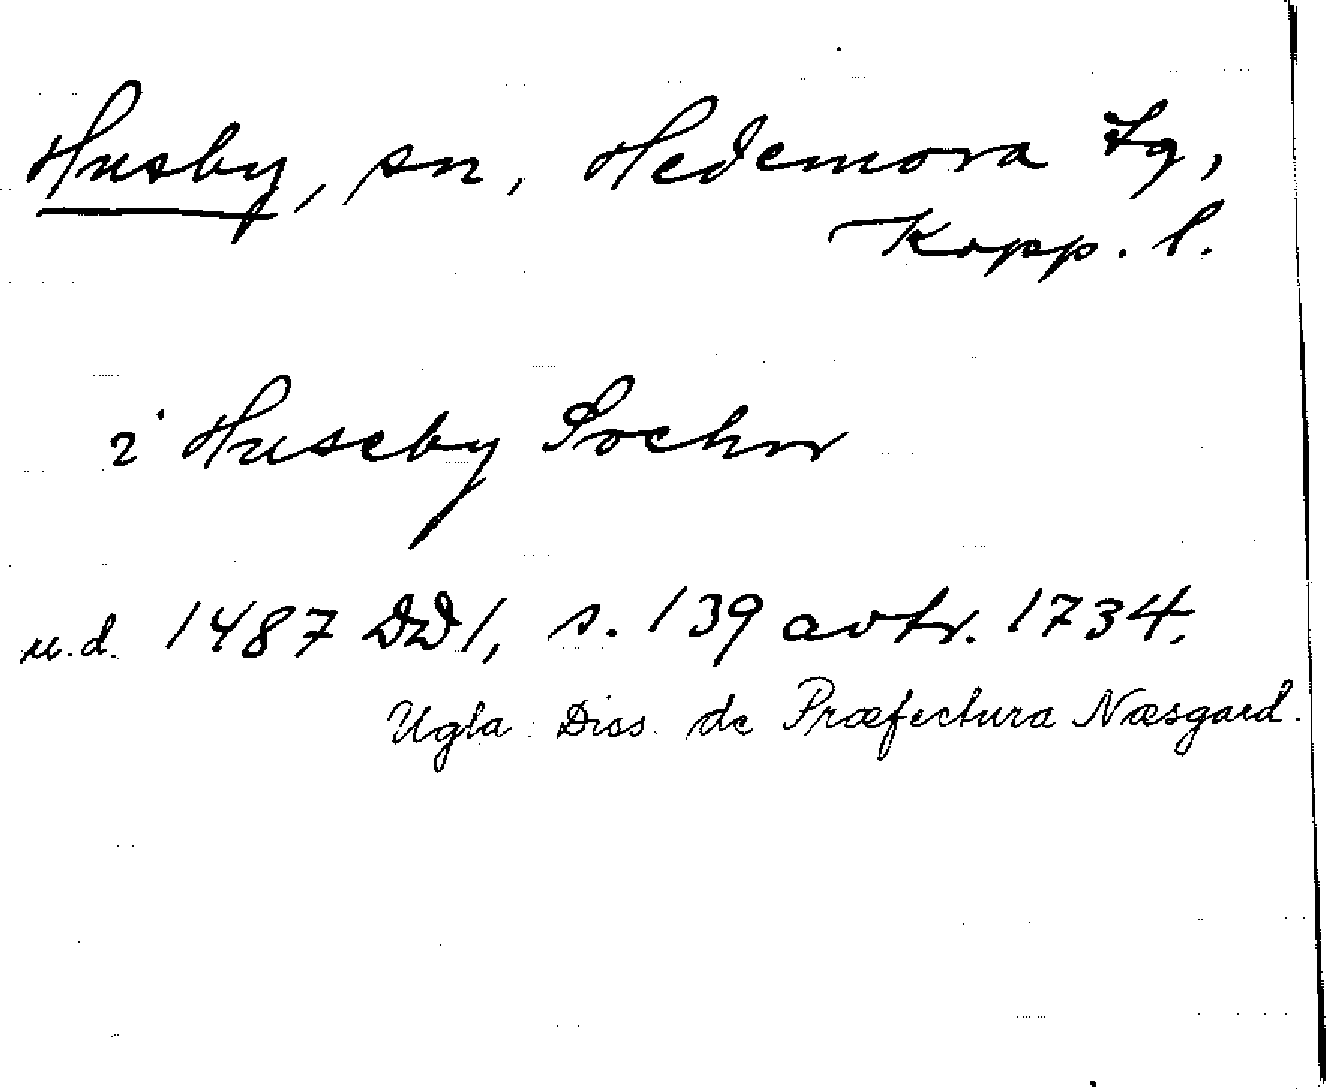 Husby, sn, Hedemora Tg,
Kopp. l.
i Huseby Sochn
u.d. 1487 DD 1, s. 139 avtr. 1734.
Ugla: Diss. de Præfectura Næsgard.